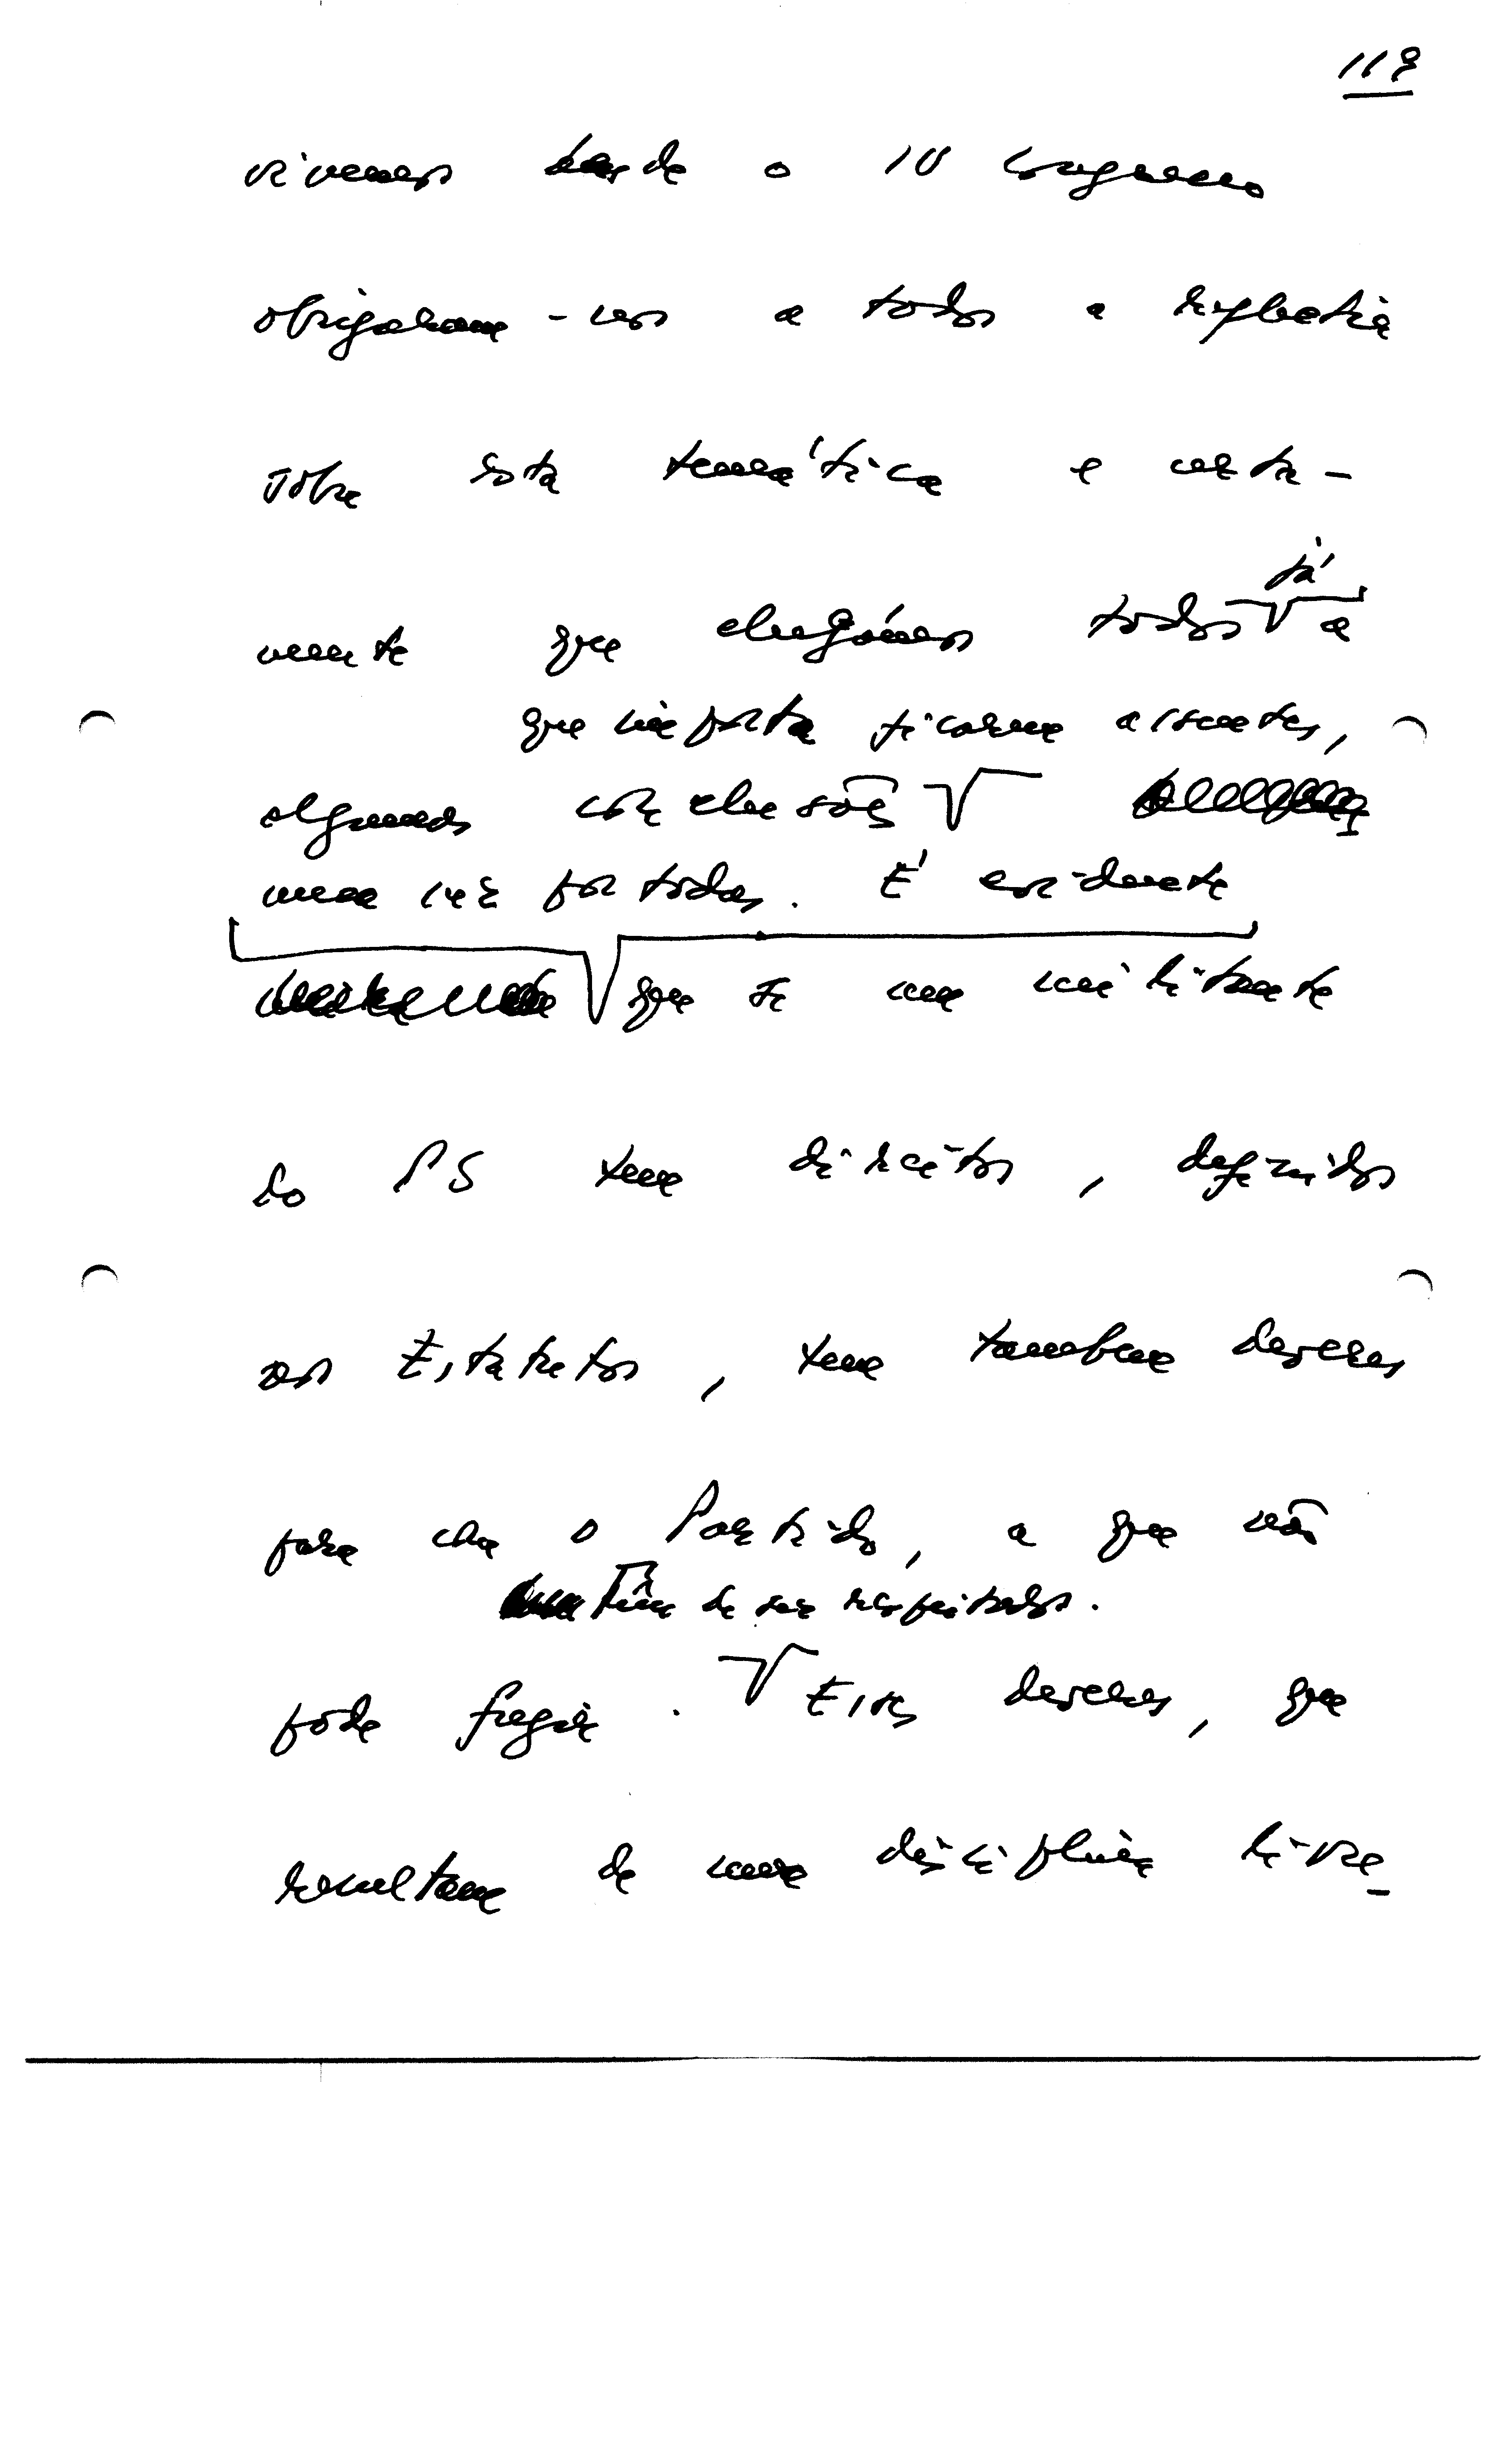 118
vivemos desde o IV Congresso
obrigaram-nos a todos a reflectir
sobre esta temática e certa-
já
mente que chegámos todos a
que importa ficarem assentes,
algumas conclusões
uma vez por todas. É evidente
que se um militante
do PS tem direitos, definidos
nos Estatutos, tem também deveres
para com o Partido, a que não
têm de ser respeitados.
pode fugir. Esses deveres, que
resultam de uma disciplina livre-